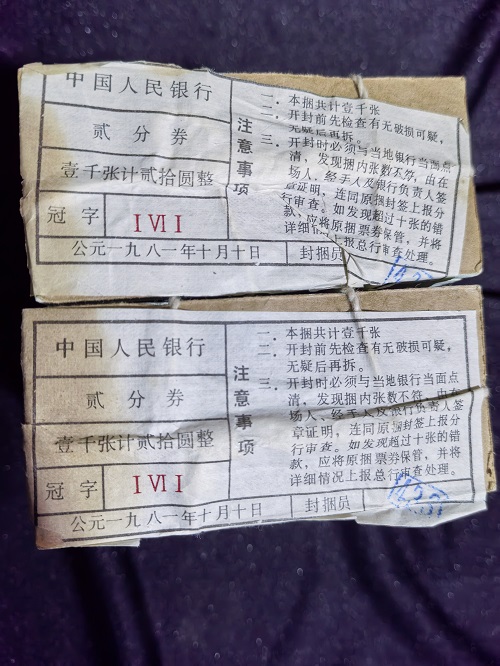 中国人民银行
贰分券
壹千张计贰拾圆整
冠字 IVI
公元一九八一年十月十日
封捆员
注意事项
一．本捆共计壹千张
二．开封前先检查有无破损可疑，
无疑后再拆。
三．开封时必须与当地银行当面点
清，发现捆内张数不符，由在
场人、经手人及银行负责人签
章证明，连同原捆封签上报分
行审查。如发现超过十张的错
款，应将原捆票券保管，并将
详细情况上报总行审查处理。
中国人民银行
贰分券
壹千张计贰拾圆整
冠字 IVI
公元一九八一年十月十日
封捆员
注意事项
一．本捆共计壹千张
二．开封前先检查有无破损可疑，
无疑后再拆。
三．开封时必须与当地银行当面点
清，发现捆内张数不符，由在
场人、经手人及银行负责人签
章证明，连同原捆封签上报分
行审查。如发现超过十张的错
款，应将原捆票券保管，并将
详细情况上报总行审查处理。